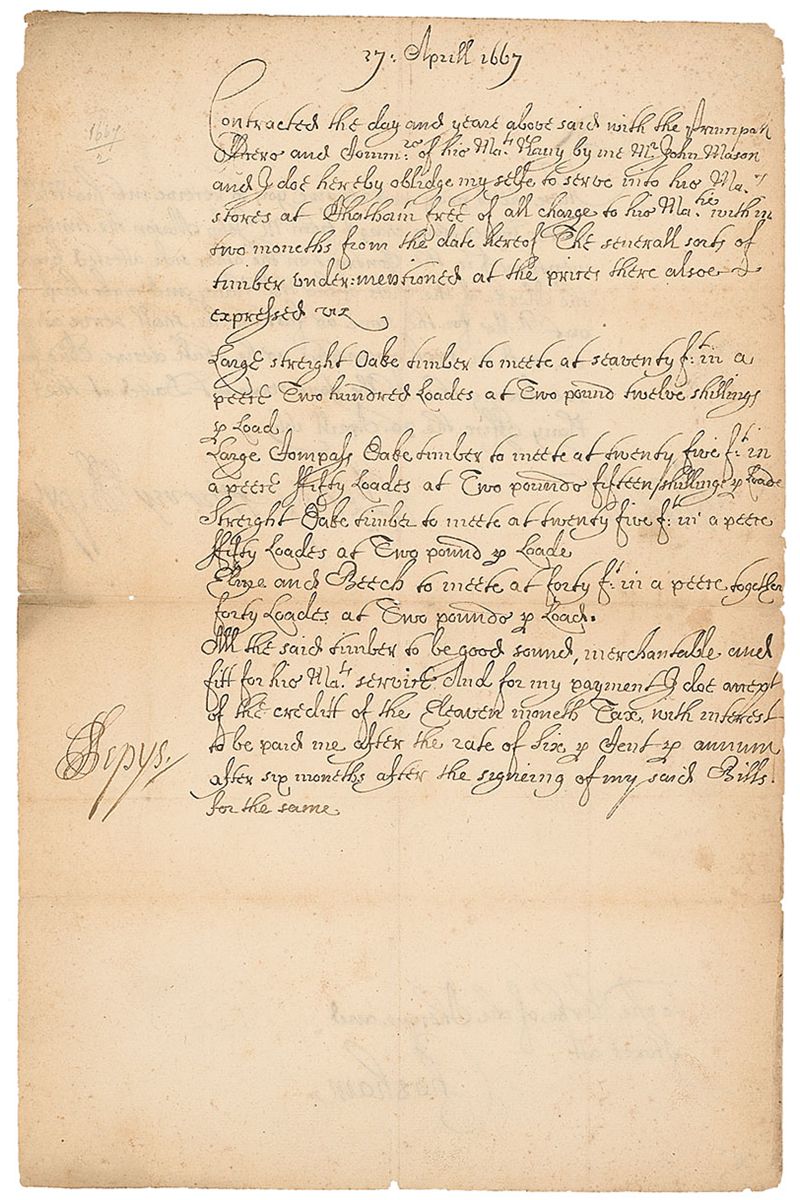 27: Aprill 1667
1667
2
Contracted the day and yeare above said with the Principall
Officers and Comm:rs of his Ma:ts Navy by me Mr John Mason
and I doe hereby oblidge my selfe to serve into his Ma:ts
stores at Chatham free of all charge to his Ma:tie with in
two moneths from the date hereof The severall sorts of
timber under:mentioned at the prices there alsoe
expressed viz
Large streight Oake timber to meete at seaventy f:t in a
peece Two hundred Loades at Two pound twelve shillings
p Load
Large Compass Oake timber to meete at twenty five f:t in
a peece ffifty Loades at Two pounds fifteen shillings p Loade
Streight Oake timber to meete at twenty five f:t in a peece
ffifty Loades at Two pound p Loade
Elme and Beech to meete at forty f:t in a peece together
forty Loades at Two pounds p Load.
All the said timber to be good sound, merchantable and
fitt for his Ma:ts service And for my payment I doe accept
of the creditt of the Eleaven moneth Tax, with interest
to be paid me after the rate of six p Cent p annum
after six months after the signing of my said Bills
for the same
SPepys.